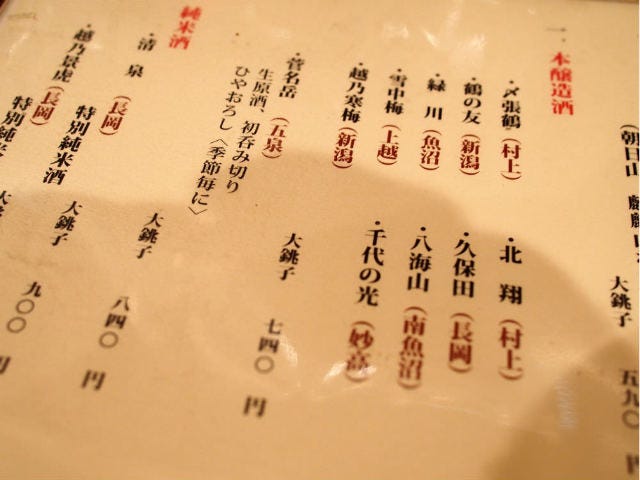 (朝日山
大銚子 五九〇 円
一、本醸造酒
・〆張鶴(村上)
・北翔(村上)
・鶴の友(新潟)
・久保田(長岡)
・緑川(魚沼)
・八海山(南魚沼)
・雪中梅(上越)
・千代の光(妙高)
・越乃寒梅(新潟)
・菅名岳(五泉)
大銚子 七四〇 円
生原酒、初呑み切り
ひやおろし〈季節毎に〉
純米酒
・清泉(長岡)
大銚子 八四〇 円
・越乃景虎(長岡) 特別純米酒
大銚子 九〇〇 円
特別純米